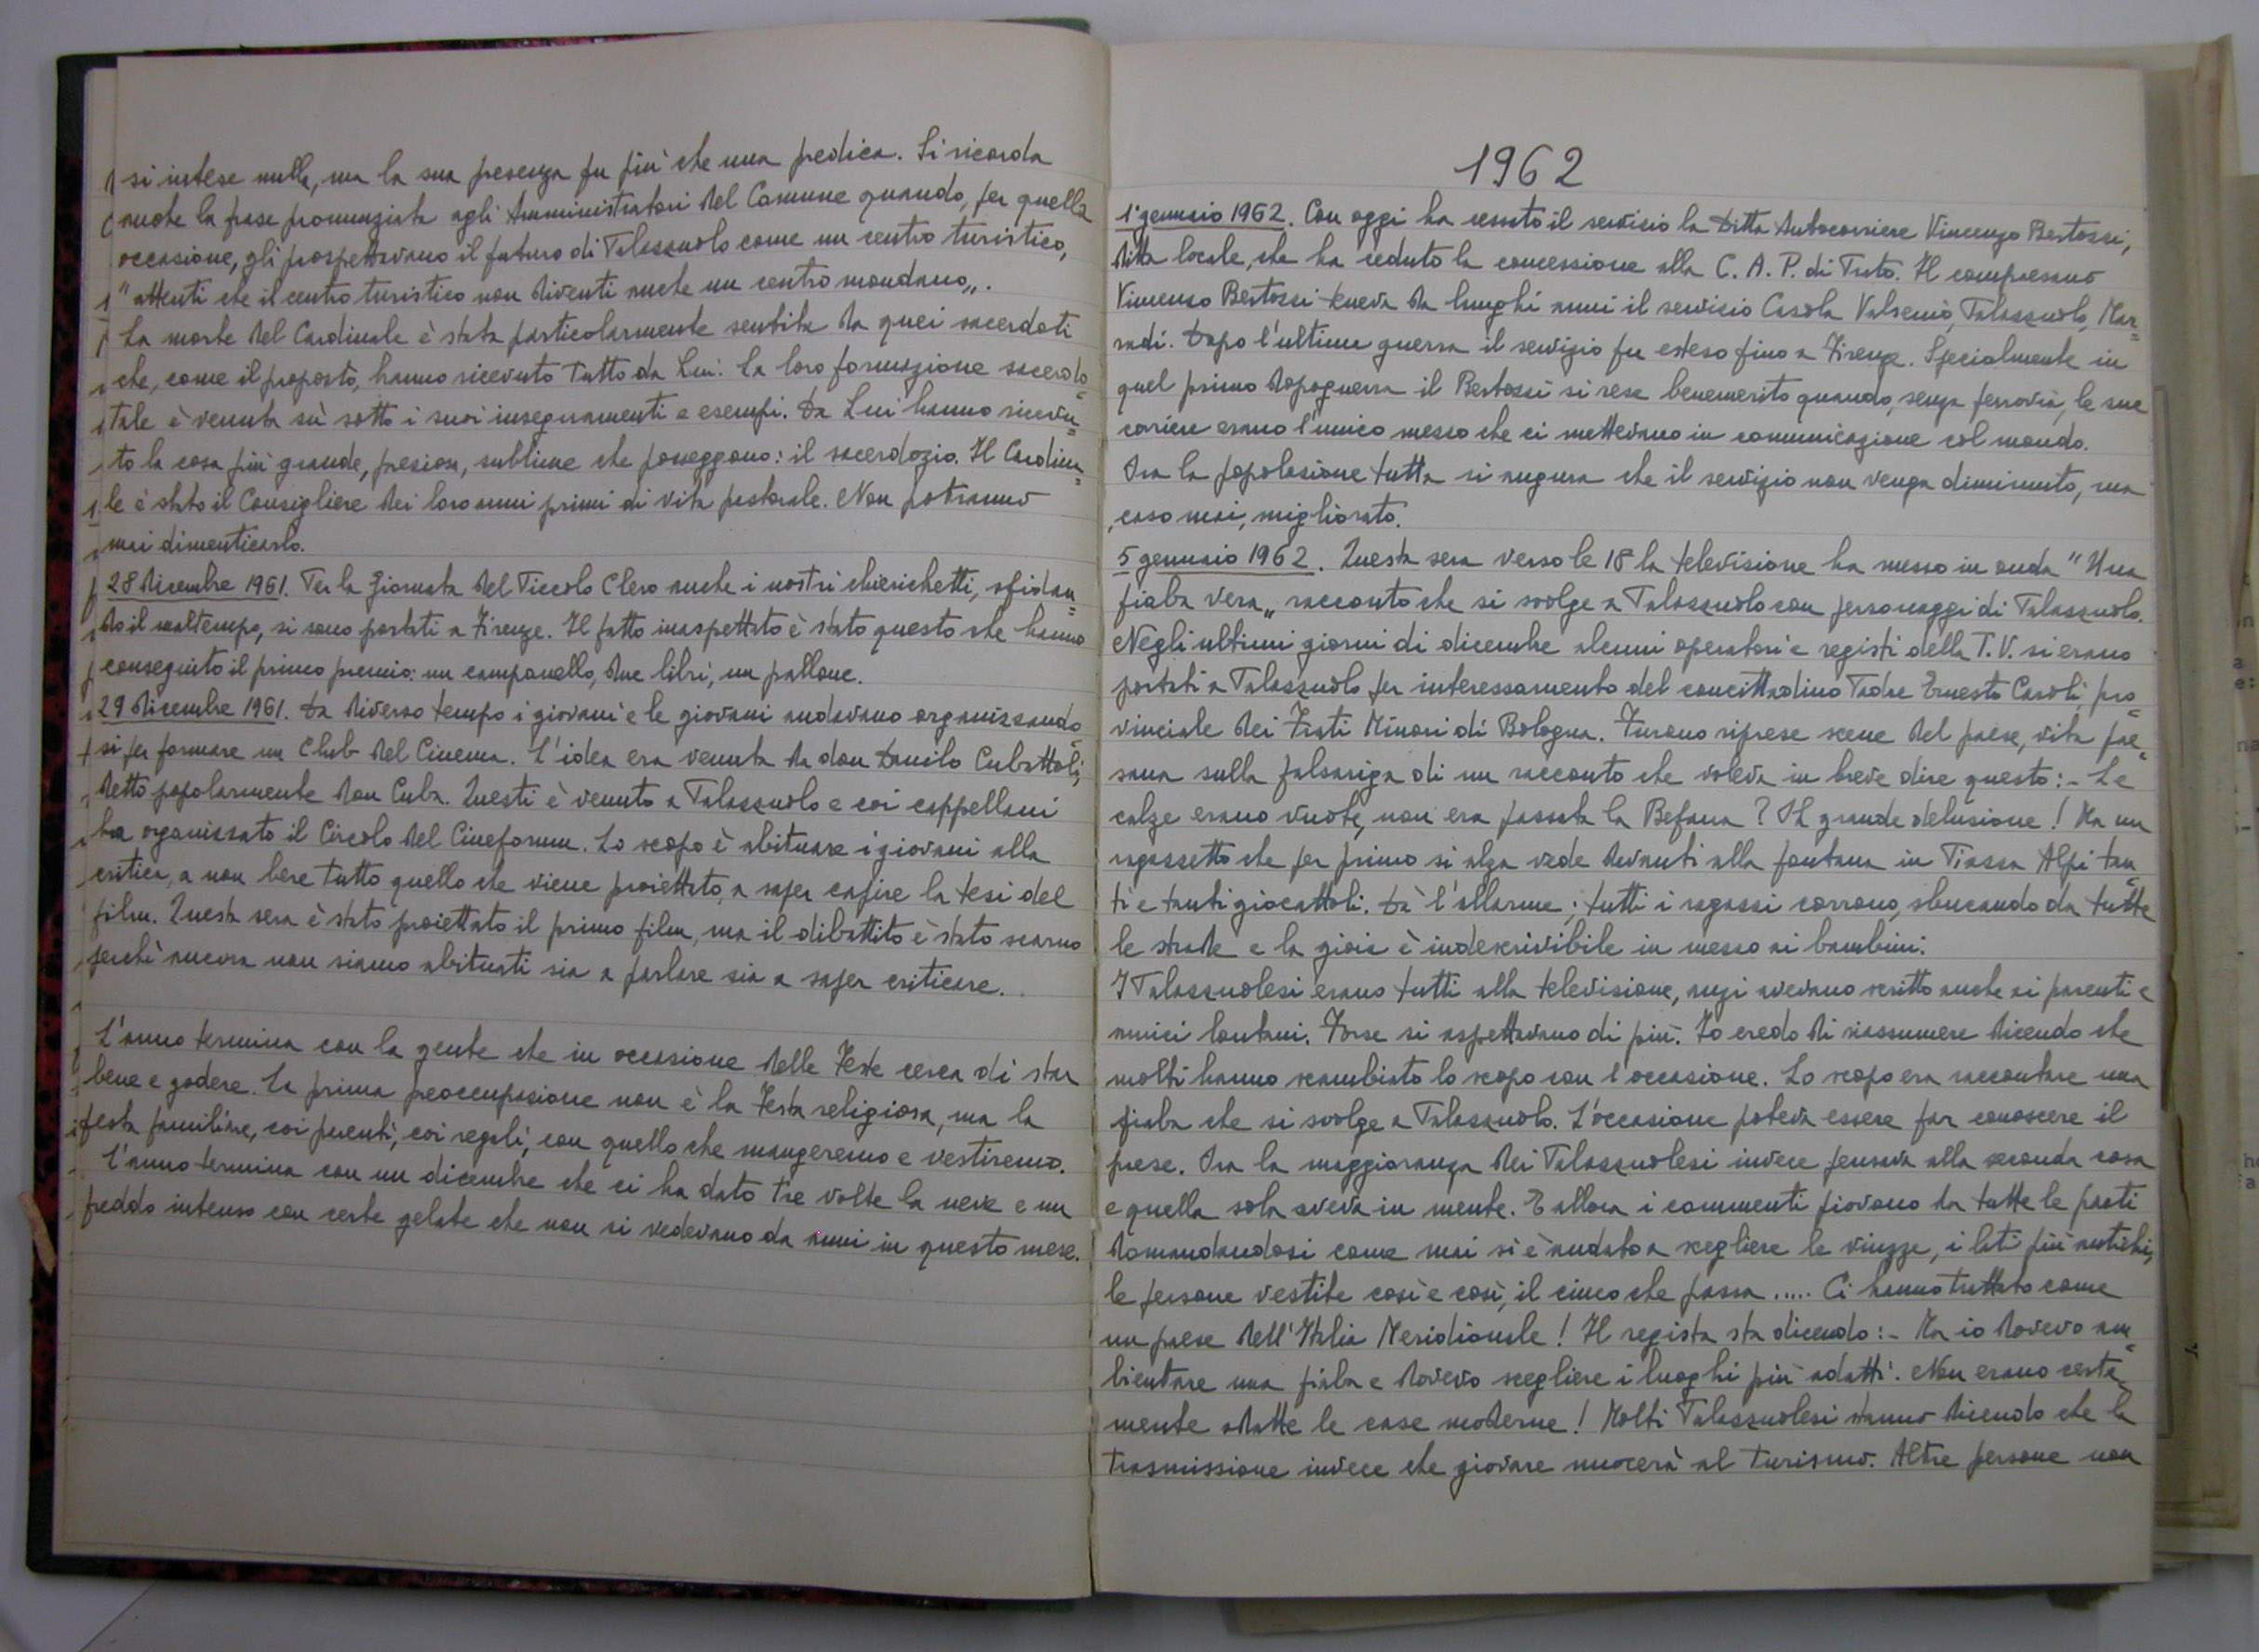 si intese nulla, ma la sua presenza fu più che una predica. Si ricorda
anche la frase pronunziata agli Amministratori del Comune quando, per quella
occasione, gli prospettavano il futuro di Palazzuolo come un centro turistico,
"attenti che il centro turistico non diventi anche un centro mondano„.
La morte del Cardinale è stata particolarmente sentita da quei sacerdoti
che, come il proposto, hanno ricevuto tutto da Lui. La loro formazione sacerdo=
tale è venuta sù sotto i suoi insegnamenti e esempi. Da Lui hanno ricevu=
to la cosa più grande, preziosa, sublime che posseggono: il sacerdozio. Il Cardina=
le è stato il Consigliere dei loro anni primi di vita pastorale. Non potranno
mai dimenticarlo.
28 dicembre 1961. Per la Giornata del Piccolo Clero anche i nostri chierichetti, sfidan=
do il maltempo, si sono portati a Firenze. Il fatto inaspettato è stato questo che hanno
conseguito il primo premio: un campanello, due libri, un pallone.
29 dicembre 1961. Da diverso tempo i giovani e le giovani andavano organizzando
si per formare un Club del Cinema. L'idea era venuta da don Danilo Cubattoli,
detto popolarmente don Cuba. Questi è venuto a Palazzuolo e coi cappellani
ha organizzato il Circolo del Cineforum. Lo scopo è abituare i giovani alla
critica, a non bere tutto quello che viene proiettato, a saper capire la tesi del
film. Questa sera è stato proiettato il primo film, ma il dibattito è stato scarno
perchè ancora non siamo abituati sia a parlare sia a saper criticare.
L'anno termina con la gente che in occasione delle Feste cerca di star
bene e godere. La prima preoccupazione non è la Festa religiosa, ma la
festa familiare, coi parenti, coi regali, con quello che mangeremo e vestiremo.
L'anno termina con un dicembre che ci ha dato tre volte la neve e un
freddo intenso con certe gelate che non si vedevano da anni in questo mese.
1962
1° gennaio 1962. Con oggi ha cessato il servizio la Ditta Autocorriere Vincenzo Bertozzi,
ditta locale, che ha ceduto la concessione alla C. A. P. di Prato. Il compaesano
Vincenzo Bertozzi teneva da lunghi anni il servizio Casola Valsenio, Palazzuolo, Mar=
radi. Dopo l'ultima guerra il servizio fu esteso fino a Firenze. Specialmente in
quel primo dopoguerra il Bertozzi si rese benemerito quando, senza ferrovia, le sue
corriere erano l'unico mezzo che ci mettevano in comunicazione col mondo.
Ora la popolazione tutta si augura che il servizio non venga diminuito, ma
caso mai, migliorato.
5 gennaio 1962. Questa sera verso le 18 la televisione ha messo in onda "Una
fiaba vera„ racconto che si svolge a Palazzuolo con personaggi di Palazzuolo.
Negli ultimi giorni di dicembre alcuni operatori e registi della T.V. si erano
portati a Palazzuolo per interessamento del concittadino Padre Ernesto Caroli, pro=
vinciale dei Frati Minori di Bologna. Furono riprese scene del paese, vita pae=
sana sulla falsariga di un racconto che voleva in breve dire questo:- Le
calze erano vuote, non era passata la Befana? Oh grande delusione! Ma un
ragazzetto che per primo si alza vede davanti alla fontana in Piazza Alpi tan=
ti e tanti giocattoli. Dà l'allarme; tutti i ragazzi corrono, sbucando da tutte
le strade e la gioia è indescrivibile in mezzo ai bambini.
I Palazzuolesi erano tutti alla televisione, anzi avevano scritto anche ai parenti e
amici lontani. Forse si aspettavano di più. Io credo di riassumere dicendo che
molti hanno scambiato lo scopo con l'occasione. Lo scopo era raccontare una
fiaba che si svolge a Palazzuolo. L'occasione poteva essere far conoscere il
paese. Ora la maggioranza dei Palazzuolesi invece pensava alla seconda cosa
e quella sola aveva in mente. E allora i commenti piovono da tutte le parti
domandandosi come mai si è andato a scegliere le viuzze, i lati più antichi,
le persone vestite così e così, il ciuco che passa..... Ci hanno trattato come
un paese dell'Italia Meridionale! Il regista sta dicendo:- Ma io dovevo am=
bientare una fiaba e dovevo scegliere i luoghi più adatti. Non erano certa
mente adatte le case moderne! Molti Palazzuolesi stanno dicendo che la
trasmissione invece che giovare nuocerà al turismo. Altre persone non